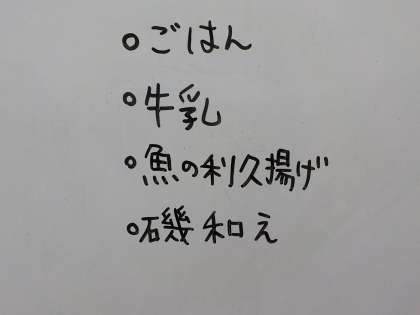 ○ごはん
○牛乳
○魚の利久揚げ
○磯和え